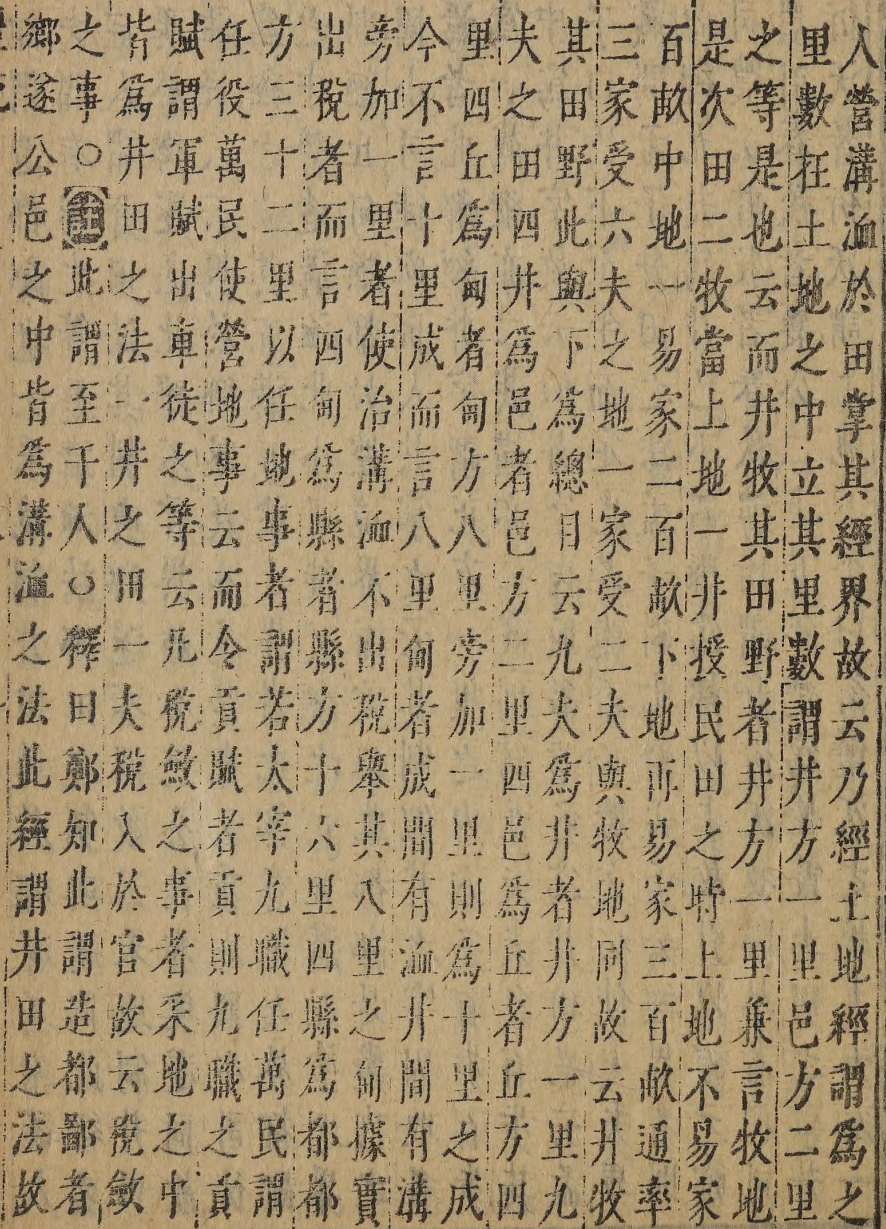 人營溝洫於田掌其經界故云乃經土地經謂爲之
里數在土地之中立其里數謂井方一里邑方二里
之等是也云而井牧其田野者井方一里兼言牧地
是次田二牧當上地一井授民田之時上地不易家
百畝中地一易家二百畝下地再易家三百畝通率
三家受六夫之地一家受二夫與牧地同故云井牧
其田野此與下爲總目云九夫爲井者井方一里九
夫之田四井爲邑者邑方二里四邑爲丘者丘方四
里四丘爲甸者甸方八里旁加一里則爲十里之成
今不言十里成而言八里甸者成間有洫井間有溝
旁加一里者使治溝洫不出稅舉其八里之甸據實
出稅者而言四甸爲縣者縣方十六里四縣爲都都
方三十二里以任地事者謂若太宰九職任萬民謂
任役萬民使營地事云而令貢賦者貢則九職之貢
賦謂軍賦出車徒之等云凡稅斂之事者采地之中
皆爲井田之法一井之田一夫稅入於官故云稅斂
之事○此謂至千人○釋曰鄭知此謂造都鄙者
鄉遂公邑之中皆爲溝洫之法此經謂井田之法故